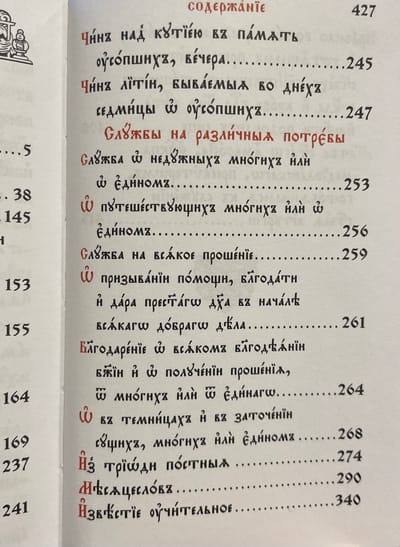 СОДЕРЖАНЇЕ 427
Чи́нъ над̾ кꙋтїе́ю въ па́мѧть
ᲂу҆со́пшихъ, ве́чера 245
Чи́нъ лїті́и, быва́емыѧ во дне́хъ
седми́цы ѡ҆ ᲂу҆со́пшихъ 247
Слꙋ́жбы на разли́чныѧ потре́бы
Слꙋ́жба ѡ҆ недꙋ́жныхъ мно́гихъ и҆лѝ
ѡ҆ є҆ди́номъ 253
Ѡ҆ пꙋтеше́ствꙋющихъ мно́гихъ и҆лѝ ѡ҆
є҆ди́номъ 256
Слꙋ́жба на всѧ́кое проше́нїе 259
Ѡ҆ призыва́нїи по́мощи, бл҃года́ти
и҆ да́ра прест҃а́гѡ дх҃а въ нача́лѣ
всѧ́кагѡ до́брагѡ дѣ́ла 261
Бл҃годаре́нїе ѡ҆ всѧ́комъ бл҃годѣѧ́нїи
бж҃їи и҆ ѡ҆ полꙋче́нїи проше́нїѧ,
ѿ мно́гихъ и҆лѝ ѿ є҆ди́нагѡ 264
Ѡ҆ въ темни́цахъ и҆ въ заточе́нїи
сꙋ́щихъ, мно́гихъ и҆лѝ є҆ди́номъ 268
И҆з̾ трїѡ́ди по́стныѧ 274
Мѣсѧцесло́въ 290
И҆звѣ́стїе ᲂу҆чи́тельное 340
5
38
145
и
153
155
164
169
237
241